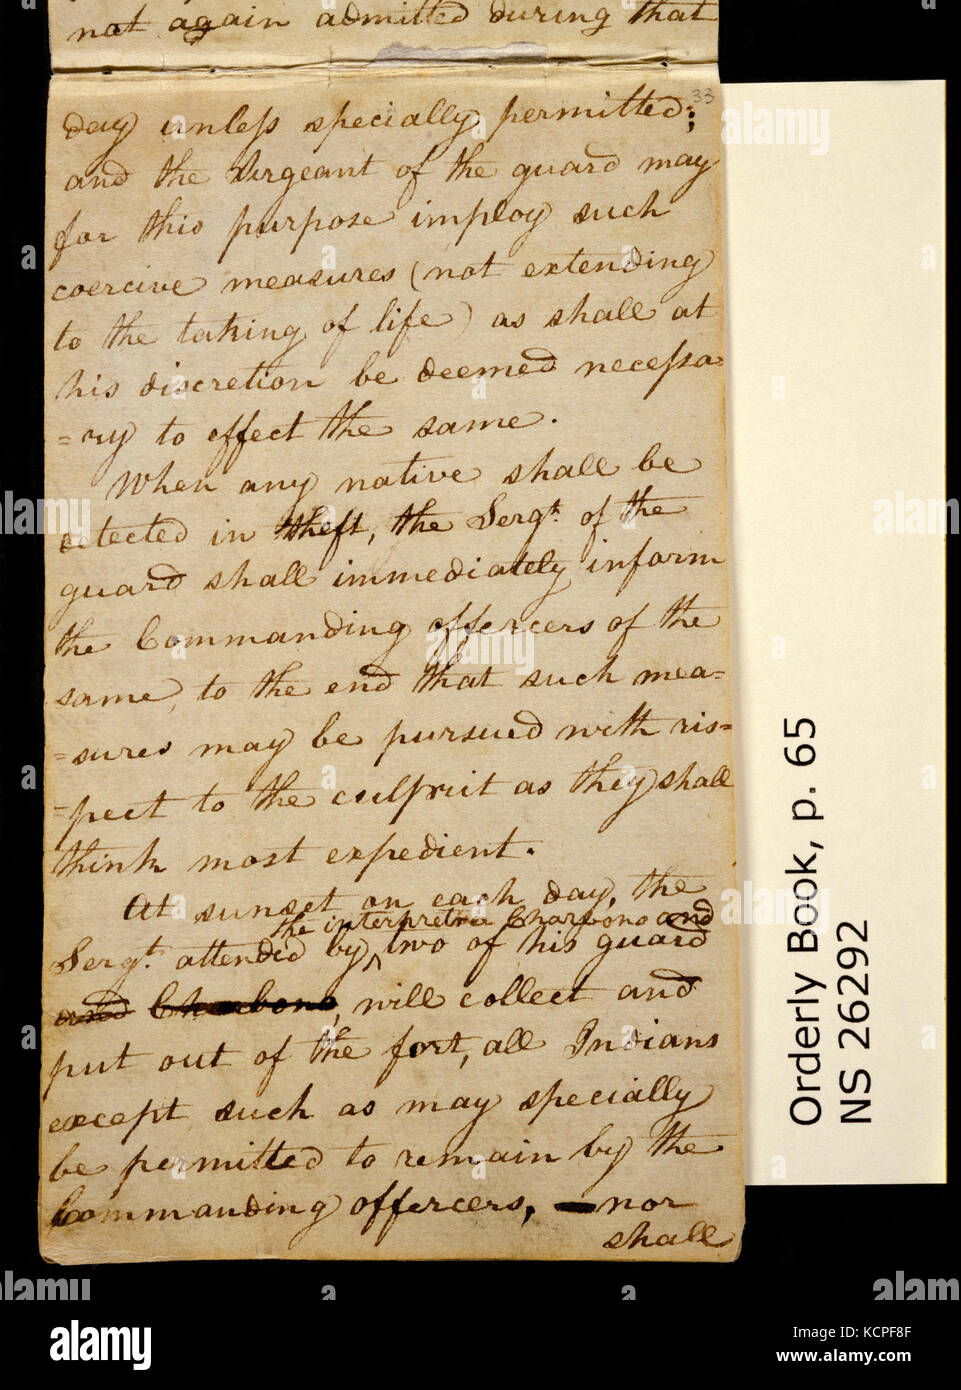 not again admitted during that
33
day unless specially permitted;
and the Sergeant of the guard may
for this purpose imploy such
coercive measures (not extending
to the taking of life) as shall at
his discretion be deemed necessa-
=ry to effect the same.
When any native shall be
detected in theft, the Sergt. of the
guard shall immediately inform
the Commanding offercers of the
same, to the end that such mea=
=sures may be pursued with ris=
=pect to the culprit as they shall
think most expedient.
At sunset on each day, the
the interpreter Charbono and
Sergt. attended by ^ two of his guard
and Charbono, will collect and
put out of the fort, all Indians
except such as may specially
be permitted to remain by the
Commanding offercers, nor
shall
Orderly Book, p. 65
NS 26292
alamy
Image ID: KCPF8F
www.alamy.com